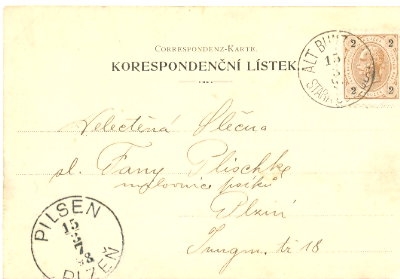 CORRESPONDENZ-KARTE.
KORESPONDENČNÍ LÍSTEK.
2 2
2 2
ALT BUNZ
15
STARÁ
Velectěná Slečna
sl. Fany Plischke
Plzni
Jungm. tř 18
PILSEN
15
PLZEŇ